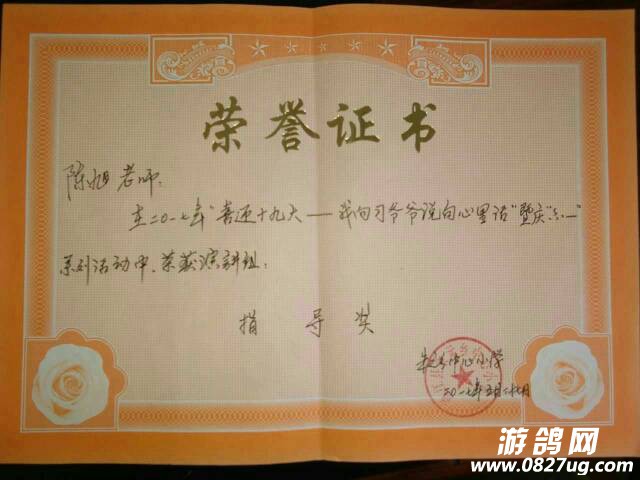 荣誉证书
陈旭老师:
在二〇一七年"喜迎十九大——我向习爷爷说句心里话"暨庆"六一"
系列活动中,荣获演讲组:
指导奖
中心小学
二〇一七年五月
游鸽网
www.0827ug.com